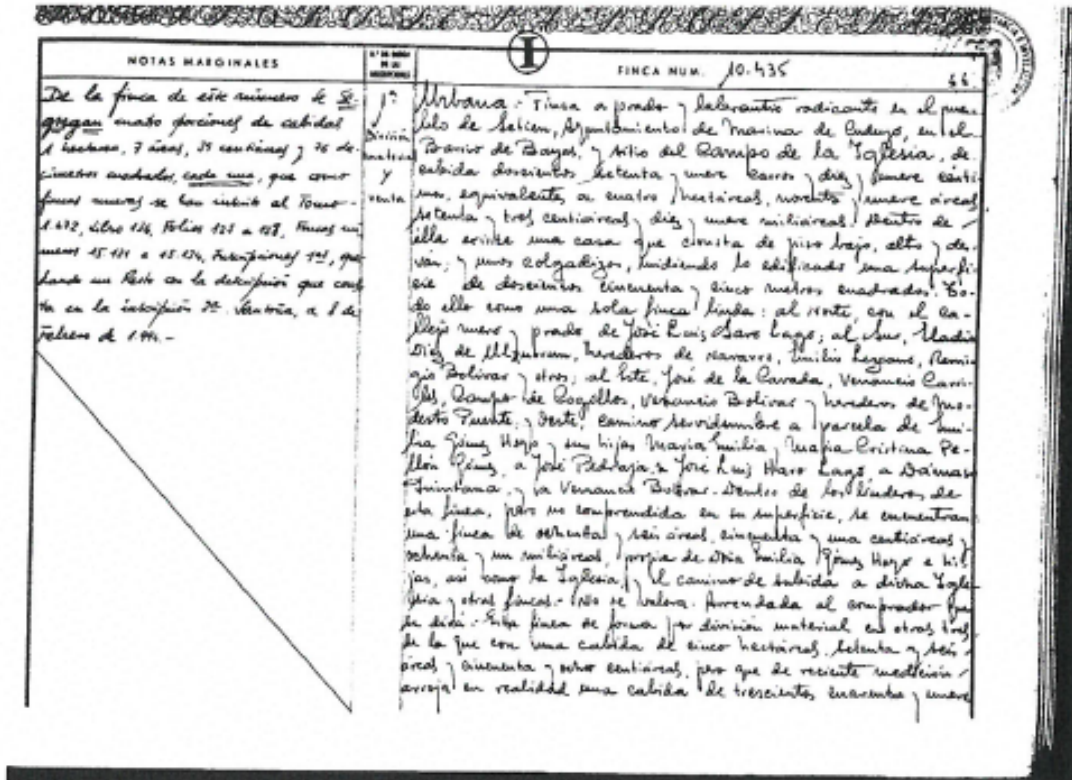 NOTAS MARGINALES
N.º DE ORDEN DE LAS INSCRIPCIONES
I
FINCA NUM. 10.435
66
De la finca de este número se Se-
gregan cuatro porciones de cabida
1 hectárea, 7 áreas, 39 centiáreas y 76 de-
címetros cuadrados, cada una, que como
fincas nuevas se han inscrito al Tomo
1.472, Libro 126, Folios 125 a 128, Fincas nú-
meros 15.131 a 15.134, Inscripciones 1ªs, que-
dando un Resto con la descripción que cons-
ta en la inscripción 2ª. Santoña, a 8 de
Febrero de
1ª
División
material
y
venta
Urbana.- Finca a prado y labrantío radicante en el pue-
blo de Setien, Ayuntamiento de Marina de Cudeyo, en el
Barrio de y sitio del Campo de la Iglesia, de
cabida doscientos setenta y nueve carros y diez y nueve cénti-
mos, equivalentes a cuatro hectáreas, noventa y nueve áreas
setenta y tres centiáreas y diez y nueve miliáreas. Dentro de
ella existe una casa que consta de piso bajo, alto y des-
ván, y unos colgadizos, midiendo lo edificado una superfi-
cie de doscientos cincuenta y cinco metros cuadrados. To-
do ello como una sola finca linda: al Norte, con el ca-
llejo nuevo y prado de José Luis Haro Lago; al Sur,
Diez de herederos de Navarro, Emilio Lezcano, Remi-
gio Bolivar y otros; al Este, José de la Cavada, Venancio Carri-
les, Campo de Cogollos, Venancio Bolivar y herederos de Mo-
desto Puente; y Oeste, camino servidumbre a parcela de Emi-
lia Gómez Hoyo y sus hijas Maria Emilia, Maria Cristina Pe-
llón Gómez, a José Pedraja, a José Luis Haro Lago, a Dámaso
Quintana, y a Venancio Bolivar. Dentro de los linderos de
esta finca, pero no comprendida en su superficie, se encuentran
una finca de ochenta y seis áreas, cincuenta y una centiáreas y
ochenta y un miliáreas, propia de Doña Emilia Gómez Hoyo e hi-
jas, así como la Iglesia y el camino de subida a dicha Igle-
sia y otras fincas. No se valora. Arrendada al comprador que
se dirá. Esta finca se forma por división material en otras tres
de la que con una cabida de cinco hectáreas, setenta y seis
áreas y cincuenta y ocho centiáreas, pero que de reciente medición
arroja en realidad una cabida de trescientos cuarenta y nueve